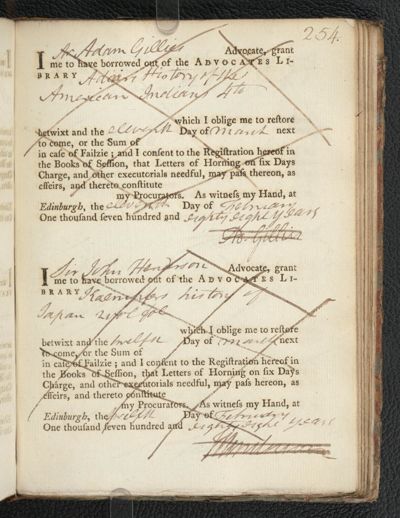 254.
I Mr Adam Gillies Advocate, grant
me to have borrowed out of the ADVOCATES LI-
BRARY Adairs History of the
American Indians 4to
which I oblige me to reſtore
betwixt and the eleventh Day of March next
to come, or the Sum of
in caſe of Failzie ; and I conſent to the Regiſtration hereof in
the Books of Seſſion, that Letters of Horning on ſix Days
Charge, and other executorials needful, may paſs thereon, as
effeirs, and thereto conſtitute
my Procurators. As witneſs my Hand, at
Edinburgh, the eleventh Day of February
One thouſand ſeven hundred and eighty eight years
Ad. Gillies
I Sir John Henderson Advocate, grant
me to have borrowed out of the ADVOCATES LI-
BRARY Kaempfers history of
Japan 2 vol fol
which I oblige me to reſtore
betwixt and the twelfth Day of March next
to come, or the Sum of
in caſe of Failzie ; and I conſent to the Regiſtration hereof in
the Books of Seſſion, that Letters of Horning on ſix Days
Charge, and other executorials needful, may paſs hereon, as
effeirs, and thereto conſtitute
my Procurators. As witneſs my Hand, at
Edinburgh, the twelfth Day of February
One thouſand ſeven hundred and eighty eight years